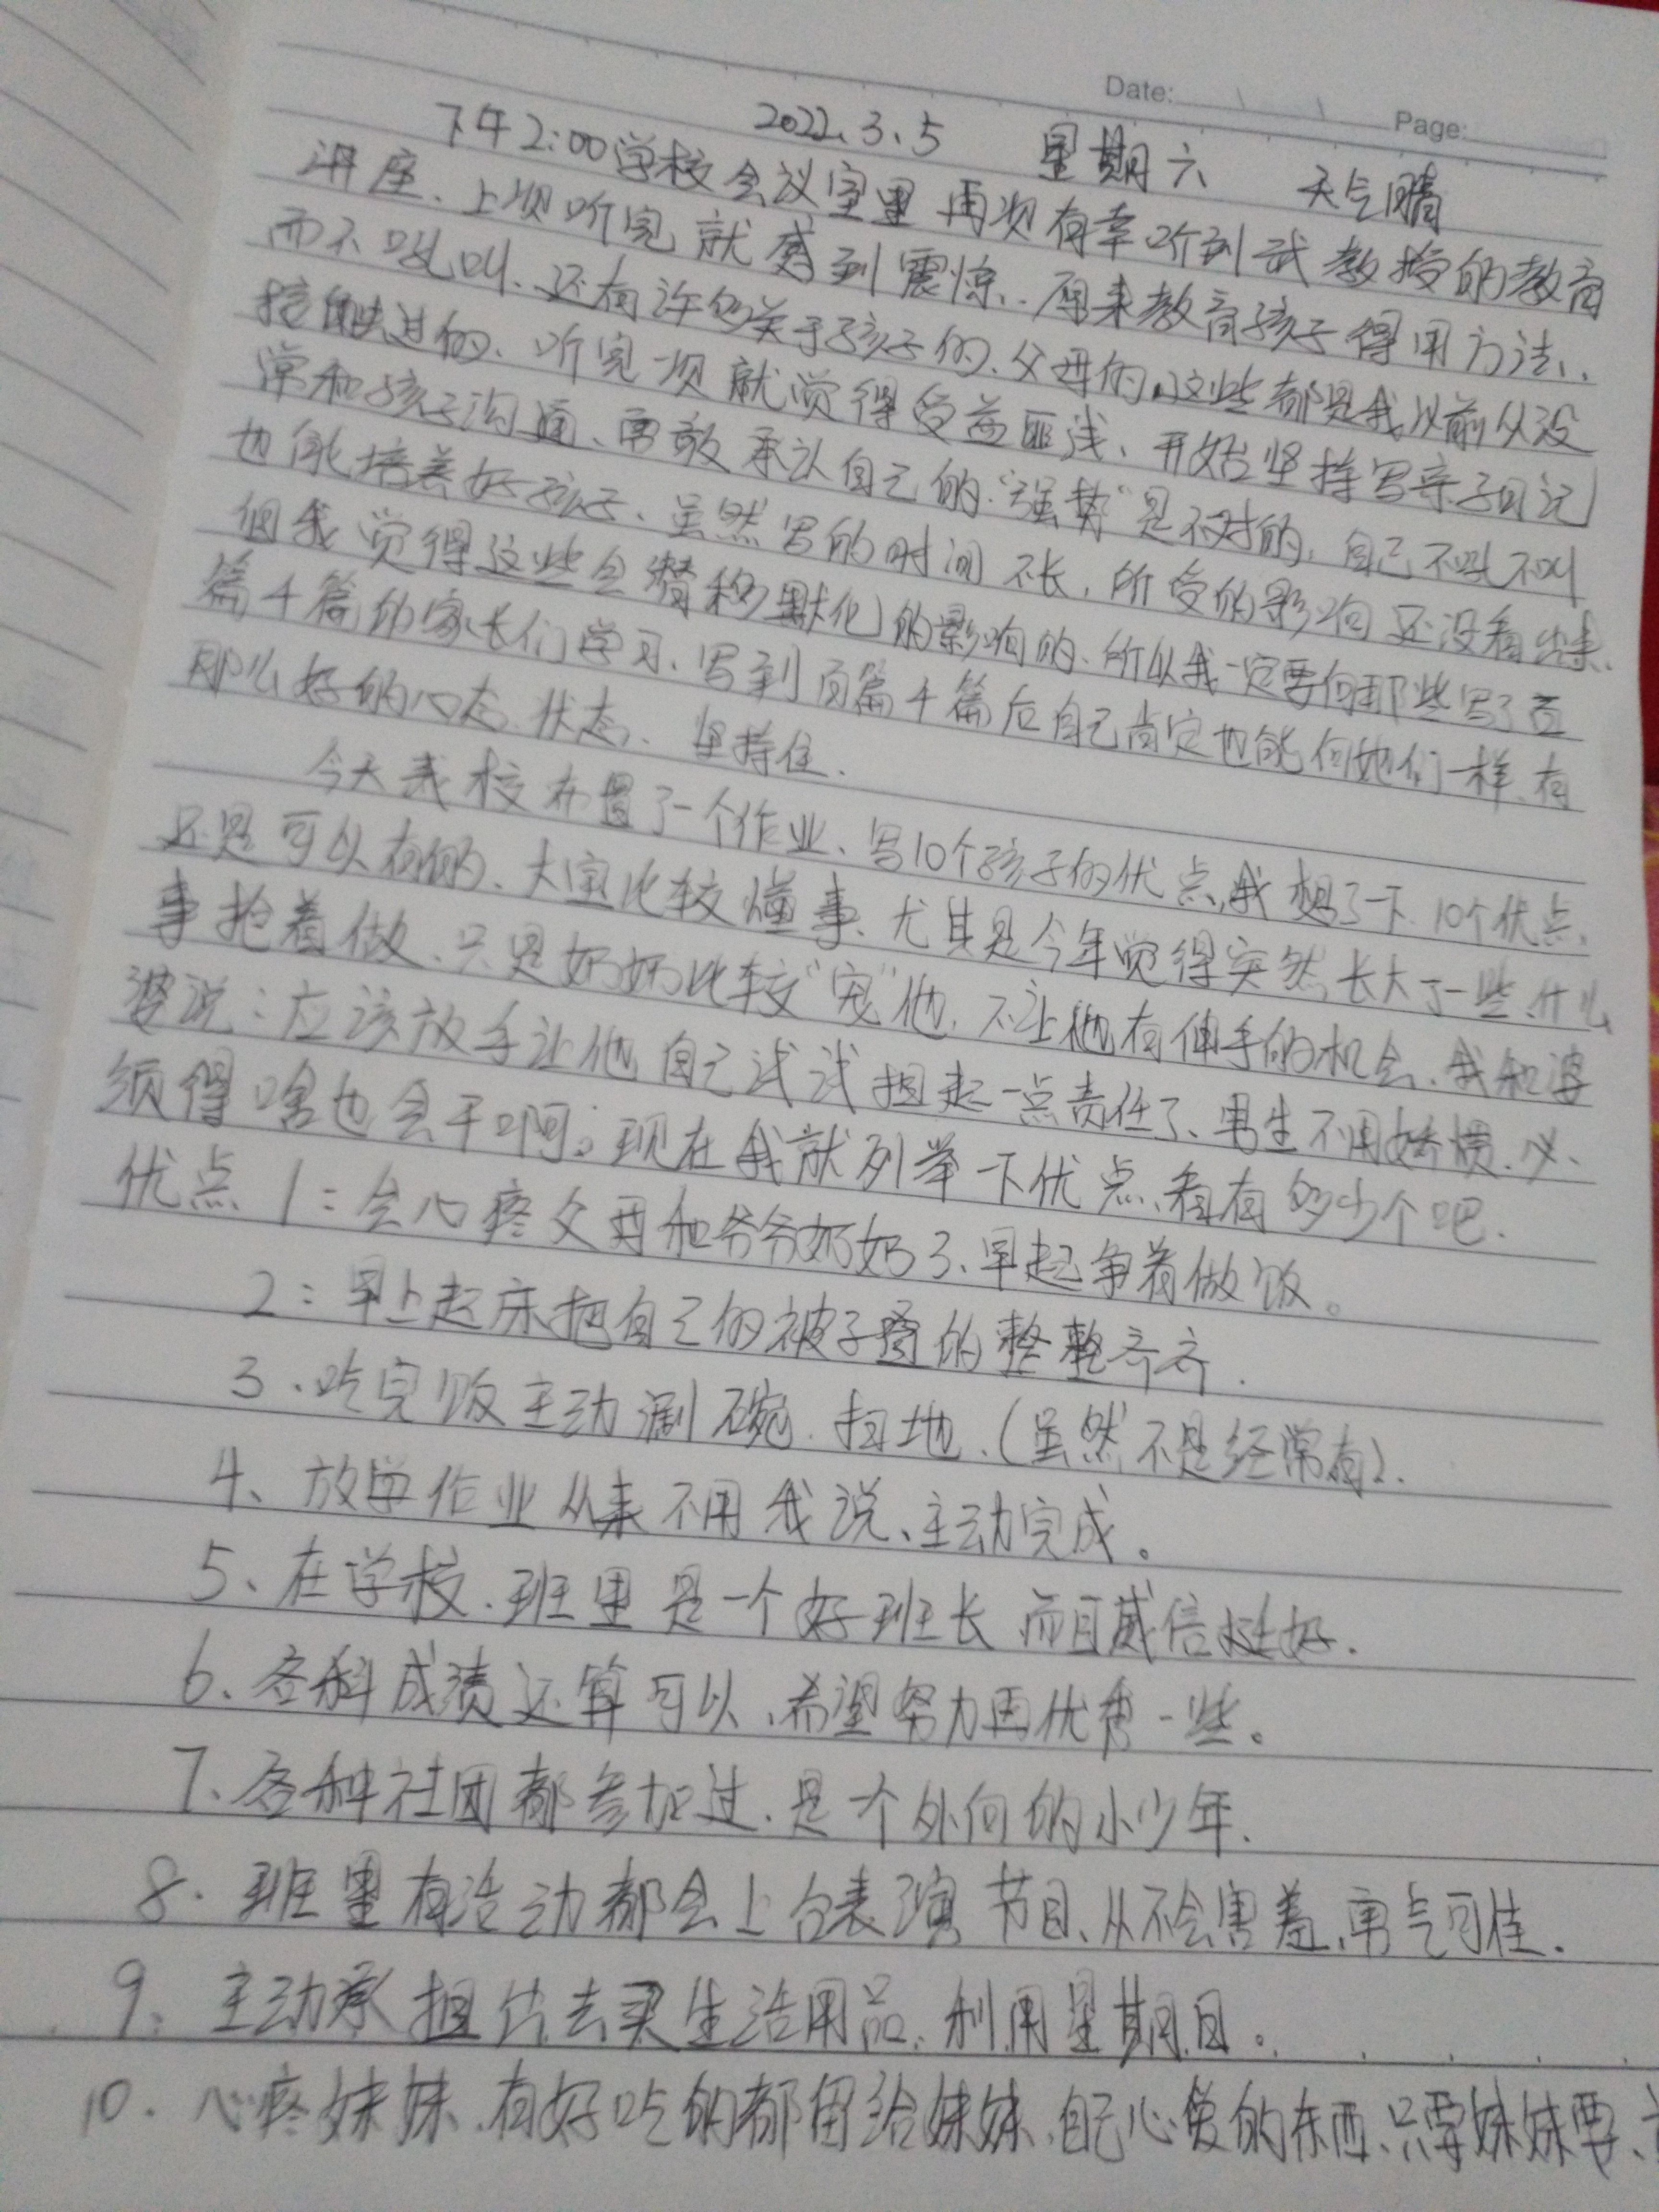 Date: Page:
2022.3.5 星期六 天气晴
下午2:00学校会议室里再次有幸听到武教授的教育
讲座、上次听完就感到震惊、原来教育孩子得用方法、
而不吼叫、还有许多关于孩子的、父母的。这些都是我以前从没
接触过的、听完一次就觉得受益匪浅、开始坚持写亲子日记
常和孩子沟通、勇敢承认自己的“强势”是不对的,自己不吼不叫
也能培养好孩子、虽然写的时间不长,所受的影响还没看出来、
但我觉得这些会潜移默化的影响的、所以我一定要向那些写了百
篇千篇的家长们学习、写到百篇千篇后自己肯定也能向她们一样、有
那么好的心态、状态、坚持住.
今天我校布置了一个作业、写10个孩子的优点,我想了一下、10个优点、
还是可以有的、大宝比较懂事、尤其是今年觉得突然长大了一些、什么
事抢着做、只是奶奶比较“宠”他,不让他有伸手的机会、我和婆
婆说:应该放手让他自己试试担起一点责任了、男生不用娇惯、必
须得啥也会干啊。现在我就列举一下优点、看有多少个吧.
优点1:会心疼父母和爷爷奶奶了、早起争着做饭。
2:早上起床把自己的被子叠的整整齐齐.
3、吃完饭主动涮碗、扫地、(虽然不是经常有).
4、放学作业从来不用我说、主动完成。
5、在学校、班里是一个好班长而且威信挺好.
6、各科成绩还算可以、希望努力再优秀一些。
7、各种社团都参加过、是一个外向的小少年.
8、班里有活动都会上台表演节目、从不会害羞、勇气可佳.
9、主动承担出去买生活用品、利用星期日。
10、心疼妹妹、有好吃的都留给妹妹、自己心爱的东西、只要妹妹要、